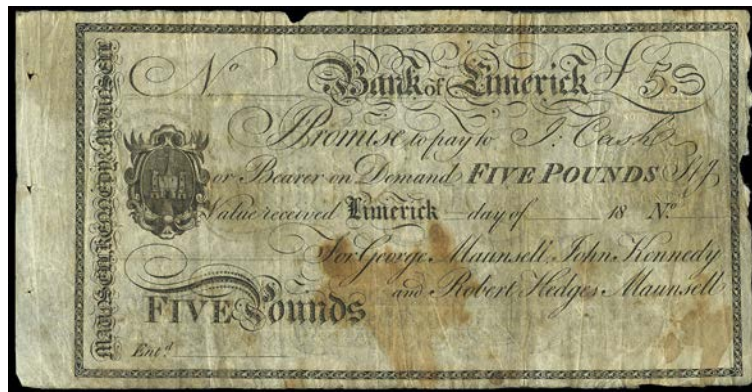 No Bank of Limerick £ 5.S
I Promise to pay to J. Cash
or Bearer on Demand FIVE POUNDS Stg
Value received Limerick day of 18 No.
For George Maunsell, John Kennedy
and Robert Hedges Maunsell
FIVE Pounds
Entd.